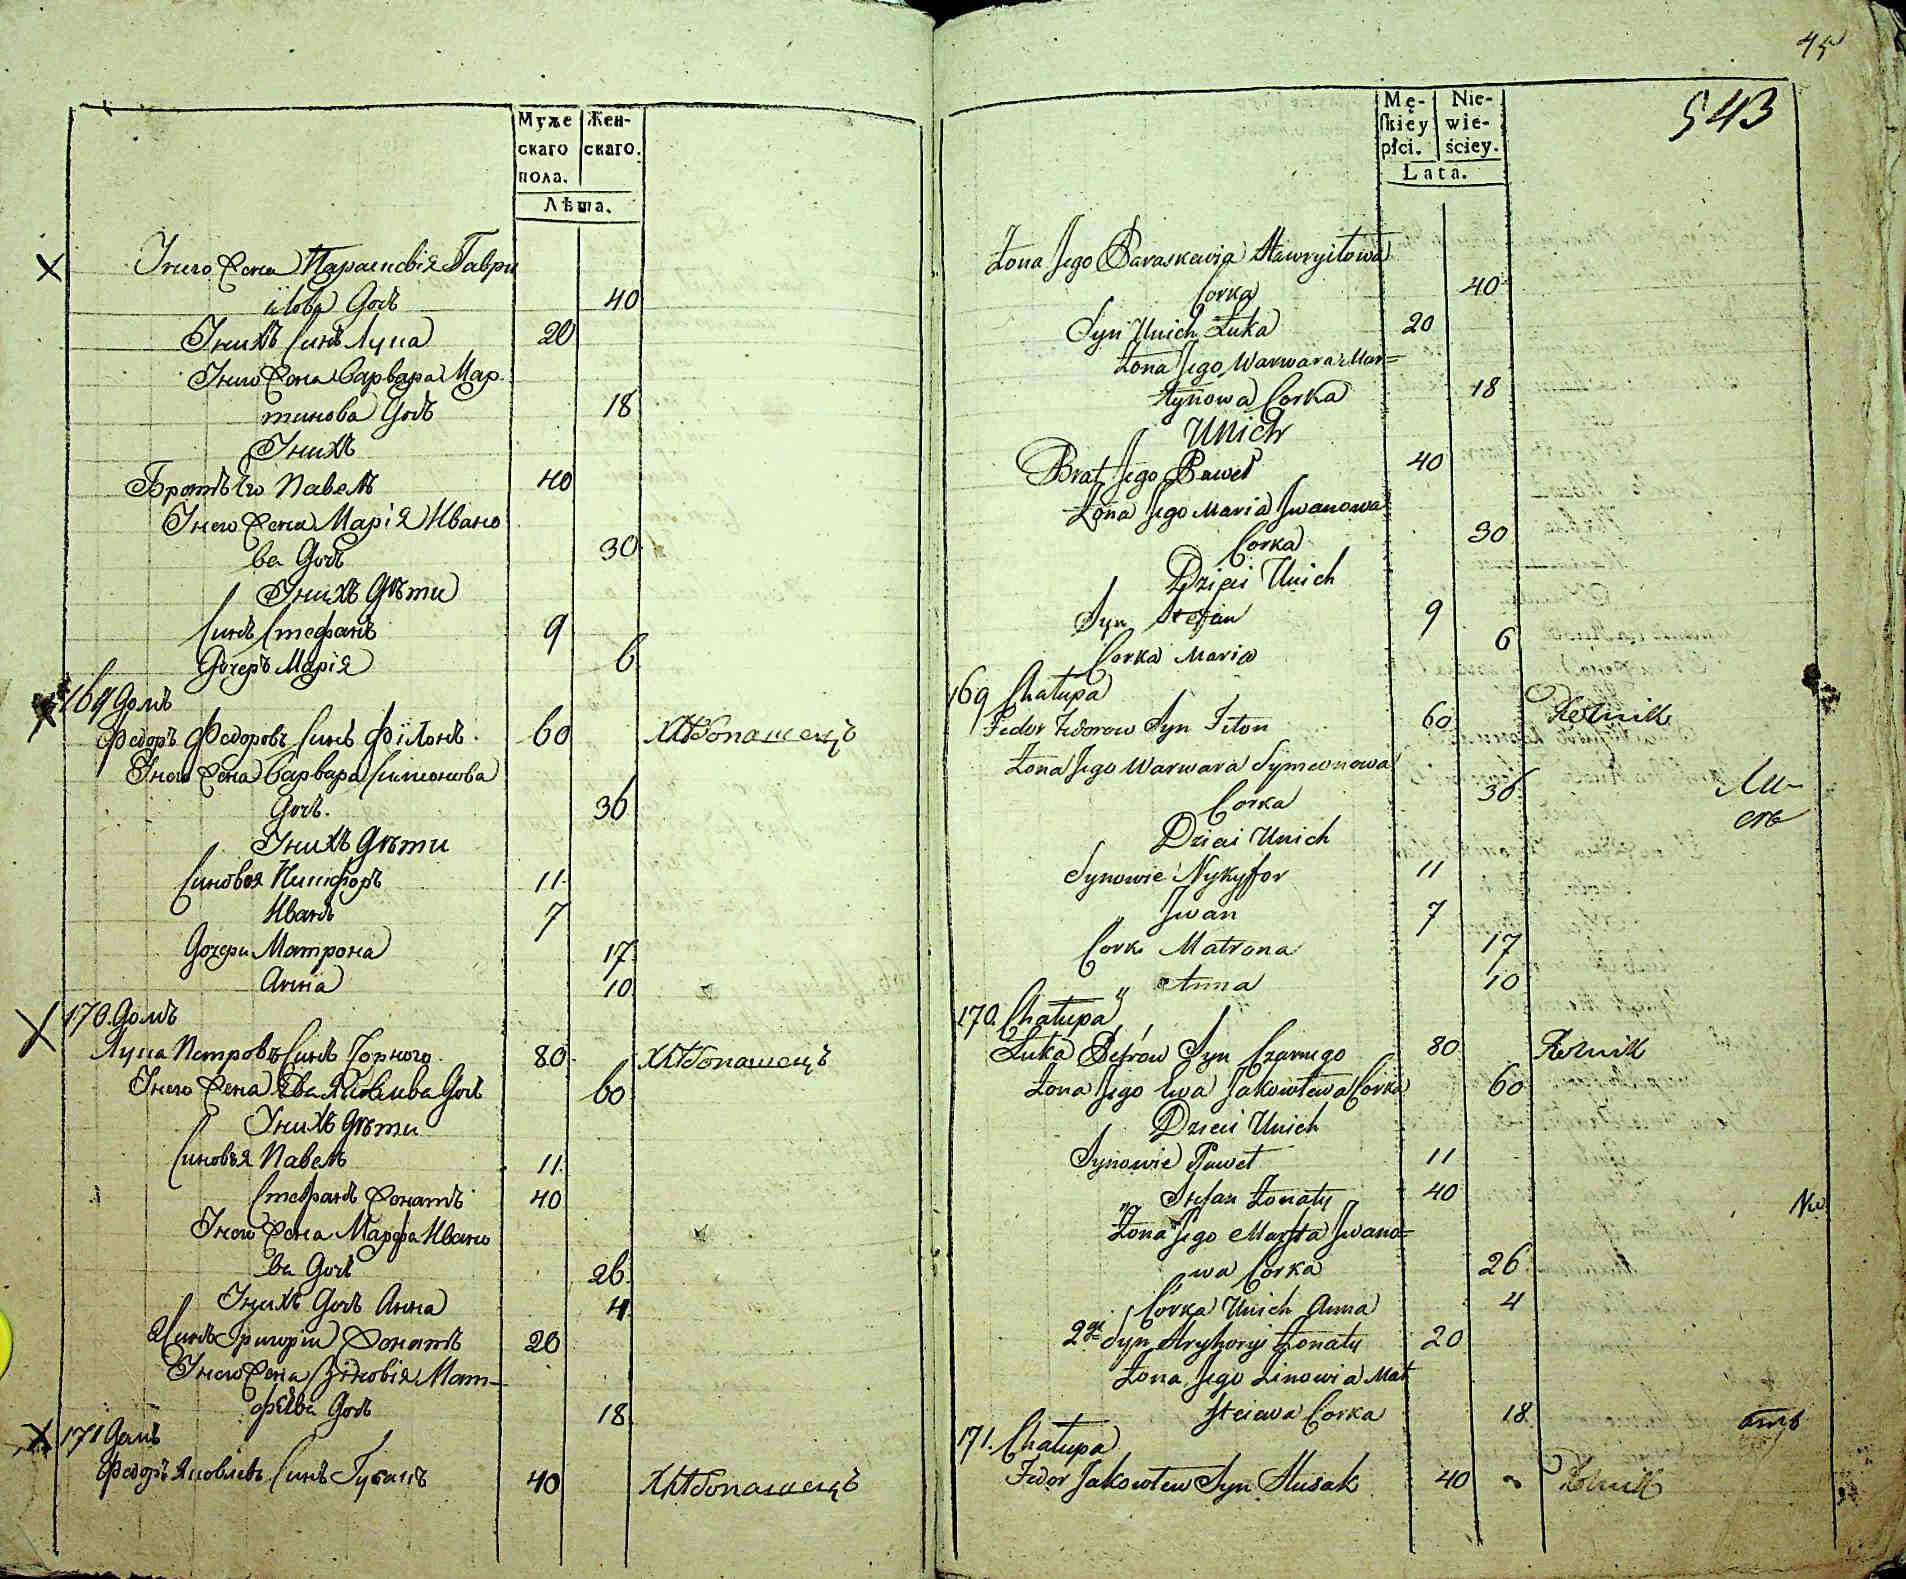 Муже скаго пола.
Жен- скаго.
Лѣта.
Унего Жена Параскевія Гаври
илова Дочь 40
Унихъ Синъ Лука 20
Унего Жена Варвара Мар
тинова Дочь 18
Унихъ
Братъ Его Павелъ 40
Унего Жена Марія Ивано
ва Дочь 30
Унихъ Дѣти
Синъ Стефанъ 9
Дочерь Марія 6
169 Домъ
Федоръ Федоровъ Синъ Філонъ 60 Хлѣбопашецъ
Унего Жена Варвара Симонова
Дочь. 36
Унихъ Дѣти
Синовья Никифоръ 11
Иванъ 7
Дочери Матрона 17
Анна 10
170. Домъ
Лука Петровъ Синъ Чорного 80 Хлѣбопашецъ
Унего Жена Ева Яковлева Дочь 60
Унихъ Дѣти
Синовья Павелъ 11
Стефанъ Жонатъ 40
Унего Жена Марфа Ивано
ва Дочь 26
Унихъ Дочь Анна 4
2 Синъ Григорій Жонатъ 20
Унего Жена Зѣновія Мат-
фѣева Дочь 18
171 Домъ
Федоръ Яковлевъ Синъ Гусакъ 40 Хлѣбопашецъ
45
543
Mę- skiey płci.
Nie- wie- ściey.
Lata.
Żona Jego Paraskewia Hawryiłowa
Corka 40
Syn Unich Łuka 20
Żona Jego Warwara Mar=
tynowa Corka 18
Unich
Brat Jego Paweł 40
Żona Jego Maria Iwanowa
Corka 30
Dzieci Unich
Syn Stefan 9
Corka Maria 6
169 Chałupa
Fedor Fedorow Syn Fiłon 60 Rolnik
Żona Jego Warwara Symeonowa
Corka 36
Dzieci Unich
Synowie Nykyfor 11
Iwan 7
Cork Matrona 17
" Anna 10
170. Chałupa
Łuka Petrów Syn Czarnego 80 Rolnik
Żona Jego Ewa Jakowlewa Corka 60
Dzieci Unich
Synowie Paweł 11
" Stefan Żonaty 40
Żona Jego Marfta Iwano=
wa Corka 26
Córka Unich Anna 4
2gi Syn Hryhory Żonaty 20
Żona Jego Zinowia Mat
fteiewa Corka 18
171. Chałupa
Fedor Jakowlew Syn Husak 40 Rolnik